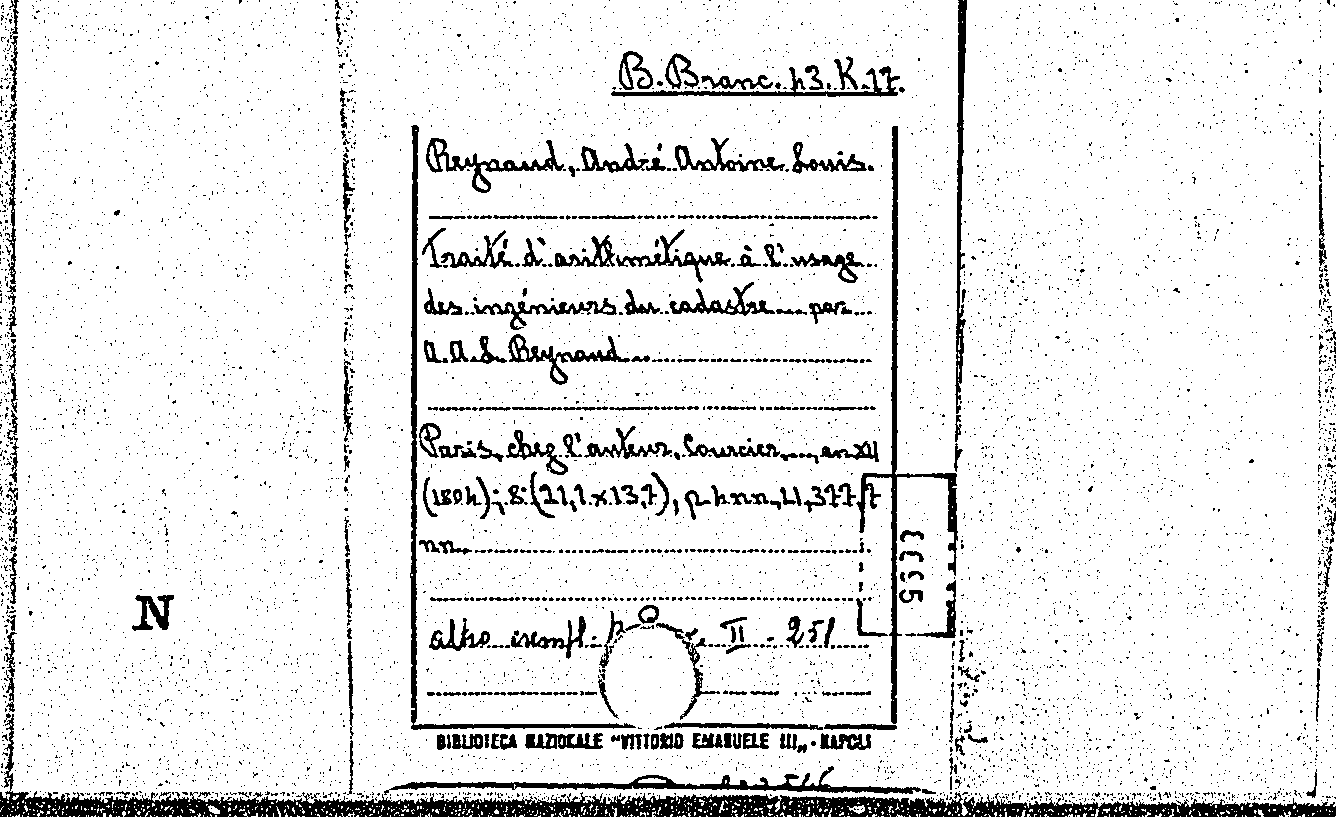 B. Branc. 43. K. 17.
Reynaud, André Antoine Louis.
Traité d'arithmétique à l'usage
des ingénieurs du cadastre.... par...
A.A.L. Reynaud...
Paris, chez l'auteur, Courcier,..., an XII
(1804); 8.(21,1 x 13,7), p. 4 nn., LI, 377, 7
nn.
altro esempl. II - 251
BIBLIOTECA NAZIONALE "VITTORIO EMANUELE III„ - NAPOLI
N